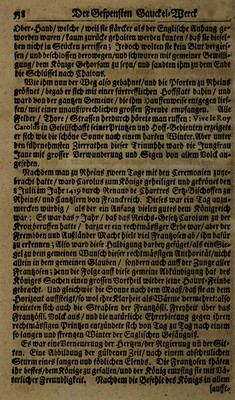 758 Der Gespensten Gauckel-Werck
Ober-Hand/ welche/ weil sie stärcker als der Englische Anhang ge-
worden waren/ kaum zurücke gehalten werden können/ daß sie die-
ben nicht in Stücken zerrissen; Jedoch wolten sie kein Blut vergies-
sen/ und deßselben bezwungen/ und schwuren mit gemeiner Bewilli-
gung/ dem Könige Gehorsam zu seyn/ und sandten ihm zu dem Ende
die Schlüssel nach Chalons.
Wie ihm nun der Weg also gebahnet/ und die Pforten zu Rheins
geöffnet/ begab er sich mit einer fürtrefflichen Hoffstatt dahin/ und
ward von der gantzen Gemeine/ die ihm Hauffenweis entgegen lief-
fen/ mit einer unaussprechlichen grossen Freude empfangen. Alle
Felder/ Thore/ Strassen herdurch hörete man ruffen: Vive le Roy
Carolus in Gesellschafft seiner Printzen und Hoff-Bedienten erzeigete
er sich wie die schöne Sonne nach einem harten Winter. Aber unter
den fühnehmsten Zierrathen dieser Triumphe ward die Jungfrau
Jane mit grosser Verwunderung und Segen von allem Volck an-
gesehen.
Nachdem man zu Rheins zween Tage mit den Ceremonien zuge-
bracht hatte/ ward Carolus zum Könige geheiliget und gesalbet den
8 Julii im Jahr 1429 durch Renaud de Chartres Ertz-Bischoffen zu
Rheins/ und Cantzlern von Franckreich. Dieses war ein Tag anzu-
mercken würdig/ als der ein Anfang vielen gutes dem Königreich
war: Es war das 7 Jahr/ daß das Reichs-Gesetz Carolum zu der
Kron beruffen hatte/ daß er ein rechtmässiger Erbe war/ aber der
Frembden und Ausländer Macht hielt viel Frantzosen ab/ ihn dafür
zu erkennen; Also ward diese Huldigung darbey gefüget/ als ein Sie-
gel zu dem gemeinen Wunsch dieser rechtmässigen Authorität/ nicht
allein in dem gemeinen Glauben/ sondern auch auff der Zunge aller
Frantzosen; denn die Folge auff diese gemeine Abkündigung hat des
Königes Sachen einen grossen Vortheil wieder seine Haupt-Feinde
gebracht. Und gleichwie die Sonne nach dem Maaß/ daß sie an dem
Horizont auffsteiget/ so wol ihre Klarheit als Wärme vermehret: also
breiteten sich auch die Strahlen der Frantzösis. Freyheit über das
Frantzösis. Volck aus/ und die natürliche Ehrerbietung gegen ihren
rechtmässigen Printzen entzündete sich von Tag zu Tag nach einem
so langen und strengen Winter der Englischen Gefängnis.
Es war eine Verneuerung der Hertzen/ der Regierung uñ der Sit-
ten. Eine Abbildung der güldenen Zeit/ nach einem abscheulichen
Sturm eines langen und tödlichen Elends. Die Frantzosen thäten
ihr bestes/ dem Könige zu gefallen/ und der König empfieng sie mit Vä-
terlicher Freundligkeit. Nachdem die Befehle des Königs in allem